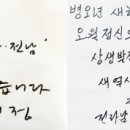 ·전남
습니다
병오년 새해
오월정신으
상생발전
새역사
전라남